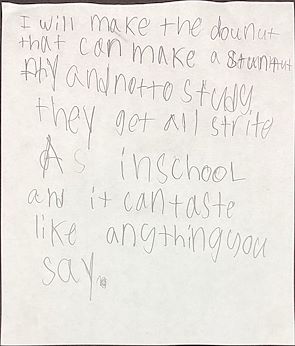 I will make the dounut
that can make a
and not to study
they get all strite
As inschool
and it can taste
like anything you
say.